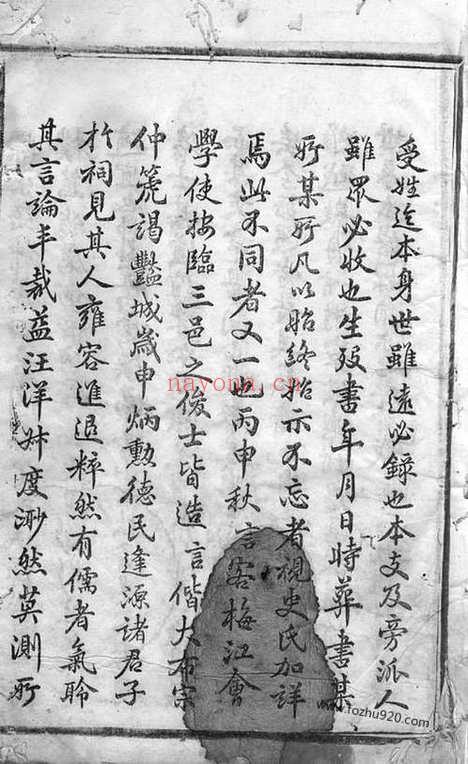 受姓迄本身世雖遠必錄也本支及旁派人
雖眾必收也生歿書年月日時葬書某
所某所凡以始終指示不忘者視史氏加詳
焉此不同者又一也丙申秋言客梅江會
學使按臨三邑之俊士皆造言偕大布宗
仲箎謁豔城歲申炳勳德民逢源諸君子
於祠見其人雍容進退粹然有儒者氣聆
其言論丰裁益汪洋叔度渺然莫測所
nayona.cn
www.fozhu920.com